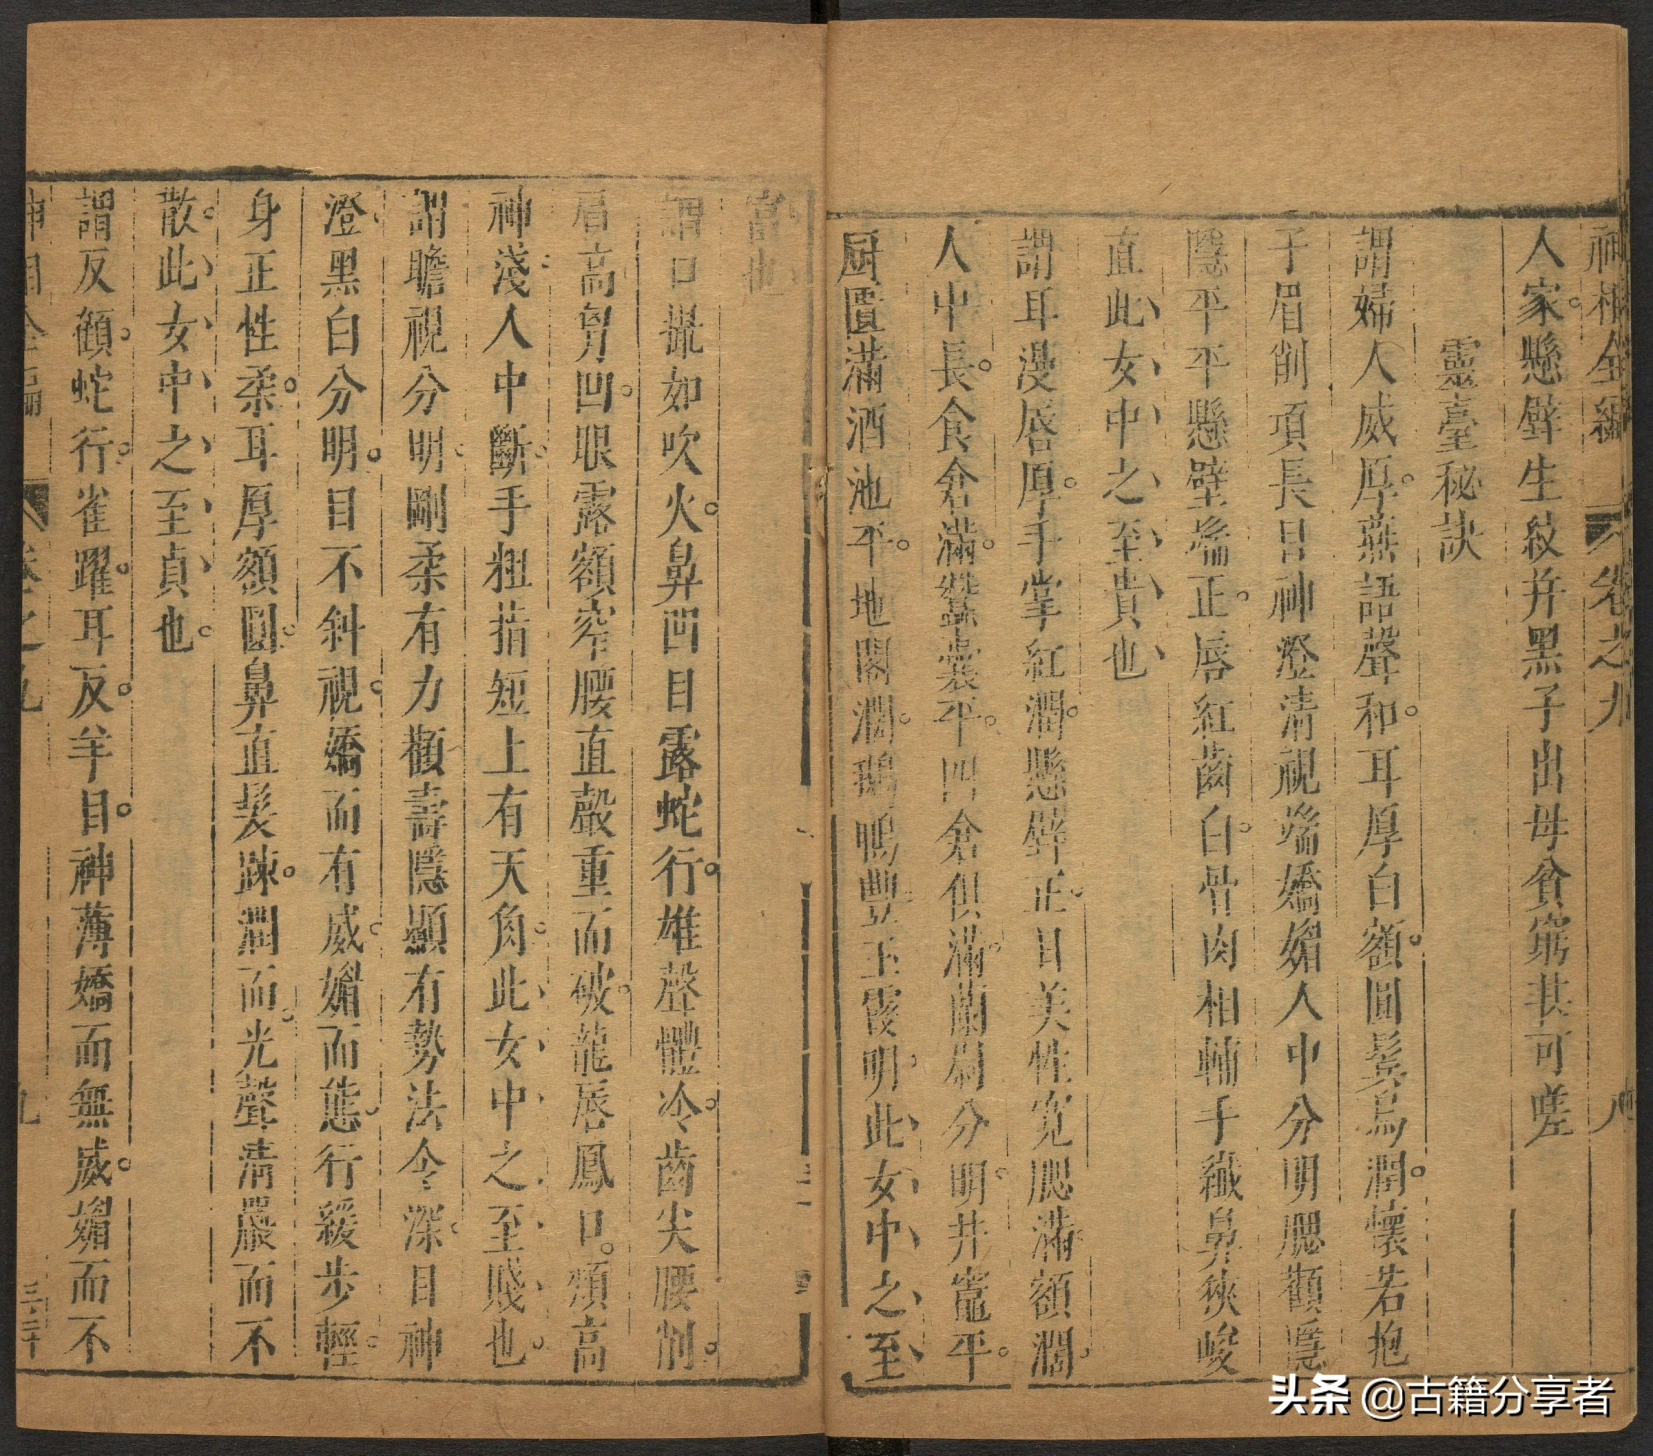 神相全編 卷之九 八
人家懸壁生紋并黑子出母貧窮甚可嗟
靈臺秘訣
謂婦人威厚燕語聲和耳厚白額圓鬓烏潤懷若抱
子眉削項長目神澄清視端嬌媚人中分明腮顴隱
隱平平懸壁端正唇紅齒白骨肉相輔手纖鼻狹峻
直此女中之至貴也
謂耳漫唇厚手掌紅潤懸壁正目美性寬腮滿額潤
人中長食倉滿蠶囊平四倉俱滿蘭廚分明井竈平
厨匱滿酒池平地閣潤鵝鴨豐玉霞明此女中之至
富也
謂口撮如吹火鼻凹目露蛇行雄聲體冷齒尖腰削
眉高鼻凹眼露額窄腰直聲重而破龍唇鳳口頰高
神淺人中斷手粗指短上有天角此女中之至賤也
謂瞻視分明剛柔有力顴壽隱顯有勢法令深目神
澄黑白分明目不斜視嬌而有威媚而態行緩步輕
身正性柔耳厚額圓鼻直髮疎潤而光聲清嚴而不
散此女中之至貞也
謂反顧蛇行雀躍耳反羊目神薄嬌而無威媚而不
神相全編 卷之九 九
头条 @古籍分享者